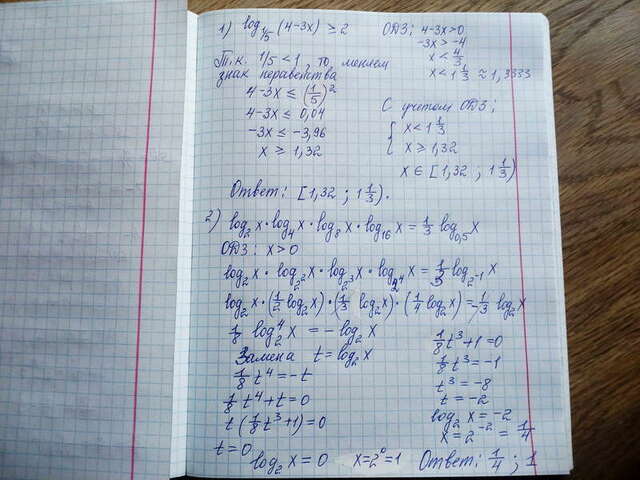 1) log₁/₅ (4-3x) ≥ 2
ОДЗ: 4-3x>0
-3x>-4
x < 4/3
x < 1 1/3 ≈ 1,3333
Т.к. 1/5 < 1, то меняем
знак неравенства
4-3x ≤ (1/5)²
4-3x ≤ 0,04
-3x ≤ -3,96
x ≥ 1,32
С учетом ОДЗ:
{ x < 1 1/3
x ≥ 1,32
x ∈ [1,32 ; 1 1/3)
Ответ: [1,32 ; 1 1/3).
2) log₂ x · log₄ x · log₈ x · log₁₆ x = 1/3 log₀,₅ x
ОДЗ: x>0
log₂ x · log₂² x · log₂³ x · log₂⁴ x = 1/3 log₂₋₁ x
log₂ x · (1/2 log₂ x) · (1/3 log₂ x) · (1/4 log₂ x) = -1/3 log₂ x
1/8 log₂⁴ x = - log₂ x
Замена t = log₂ x
1/8 t⁴ = -t
1/8 t⁴ + t = 0
t (1/8 t³ + 1) = 0
t = 0
log₂ x = 0 x = 2⁰ = 1
1/8 t³ + 1 = 0
1/8 t³ = -1
t³ = -8
t = -2
log₂ x = -2
x = 2⁻² = 1/4
Ответ: 1/4 ; 1